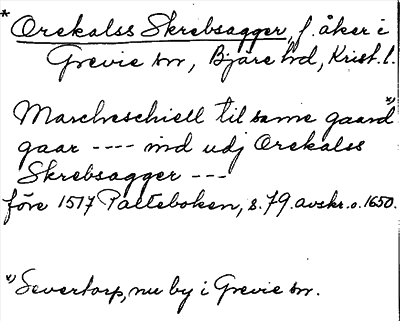 * Orekalss Skrebsagger, f. åker i
Grevie sn, Bjäre hd, Krist. l.
Marcheschiell til same gaard x)
gaar ---- ind udj Orekalss
Skrebsagger ---
före 1517 Palteboken, s. 79. avskr. o. 1650.
x) Severtorp, nu by i Grevie sn.